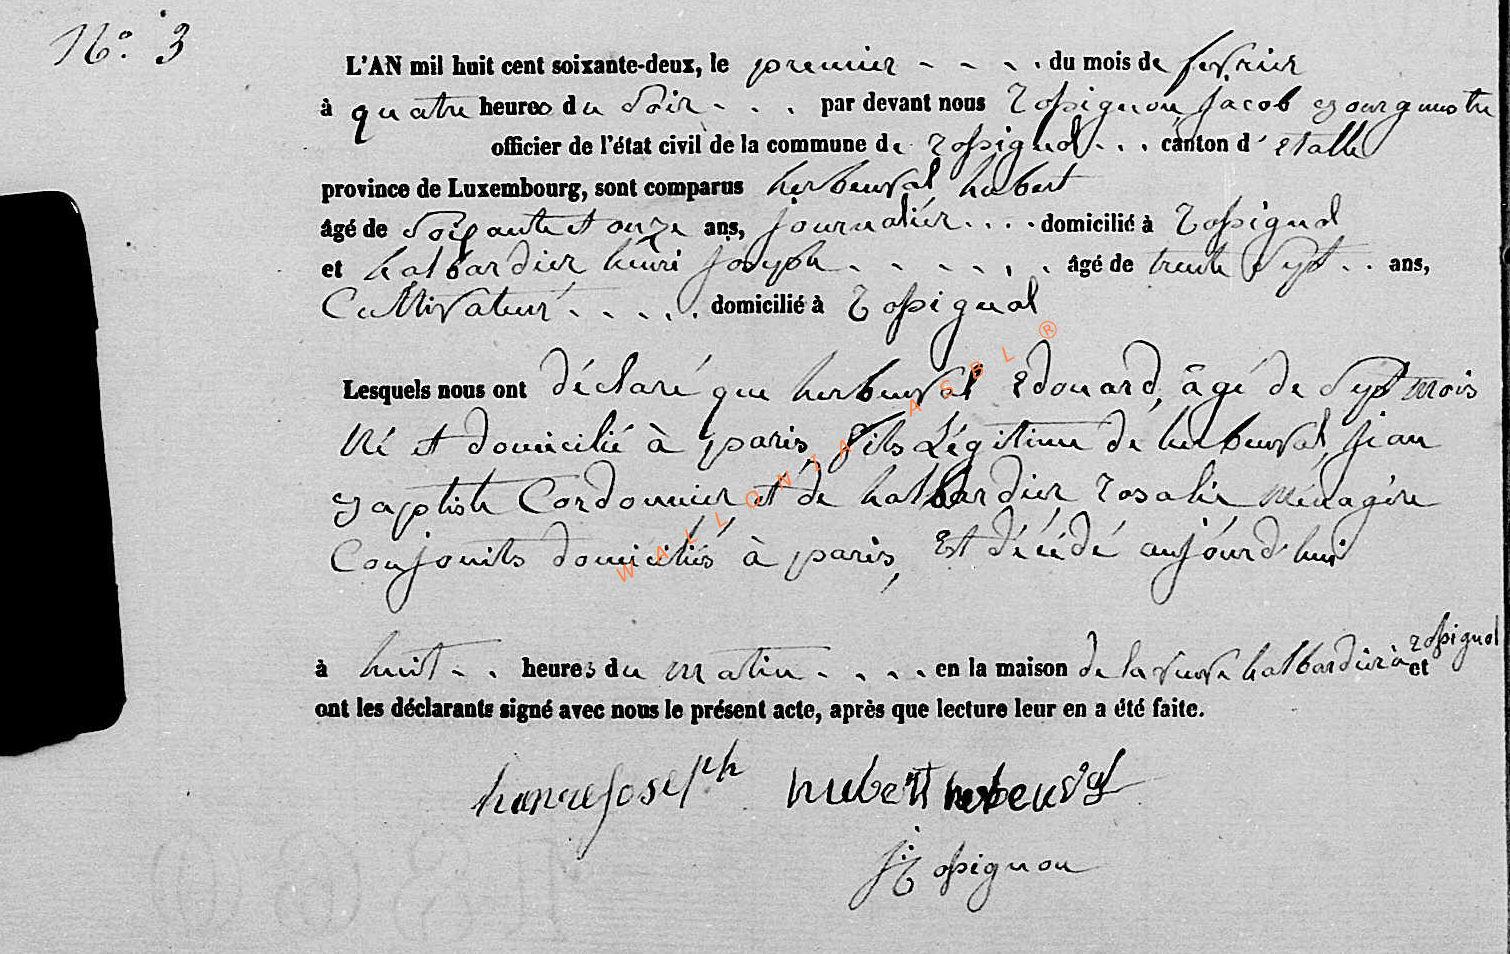 No. 3
L'AN mil huit cent soixante-deux, le premier - - - . du mois de fevrier
à quatre heures du Soir - . . par devant nous Rossignon, jacob Bourgmestre
officier de l'état civil de la commune de Rossignol . . . canton d'Etalle
province de Luxembourg, sont comparus herbeuval hubert
âgé de Soixante et onze ans, journalier . . . . domicilié à Rossignol
et halbardier henri joseph . - - - , , . âgé de trente Sept . . ans,
Cultivateur . - - . . domicilié à Rossignol
Lesquels nous ont déclaré que herbeuval Edouard, âgé de Sept mois
Né et domicilié à paris, fils Légitime de herbeuval, jean
Baptiste Cordonnier, et de halbardier Rosalie Ménagère
Conjoints domiciliés à paris, Est décédé aujourd'hui
à huit - . heures du matin . . . . en la maison de la veuve halbardier à Rossignol et
ont les déclarants signé avec nous le présent acte, après que lecture leur en a été faite.
hubert herbeuval
J. Rossignon
WALLONIA ASBL ®